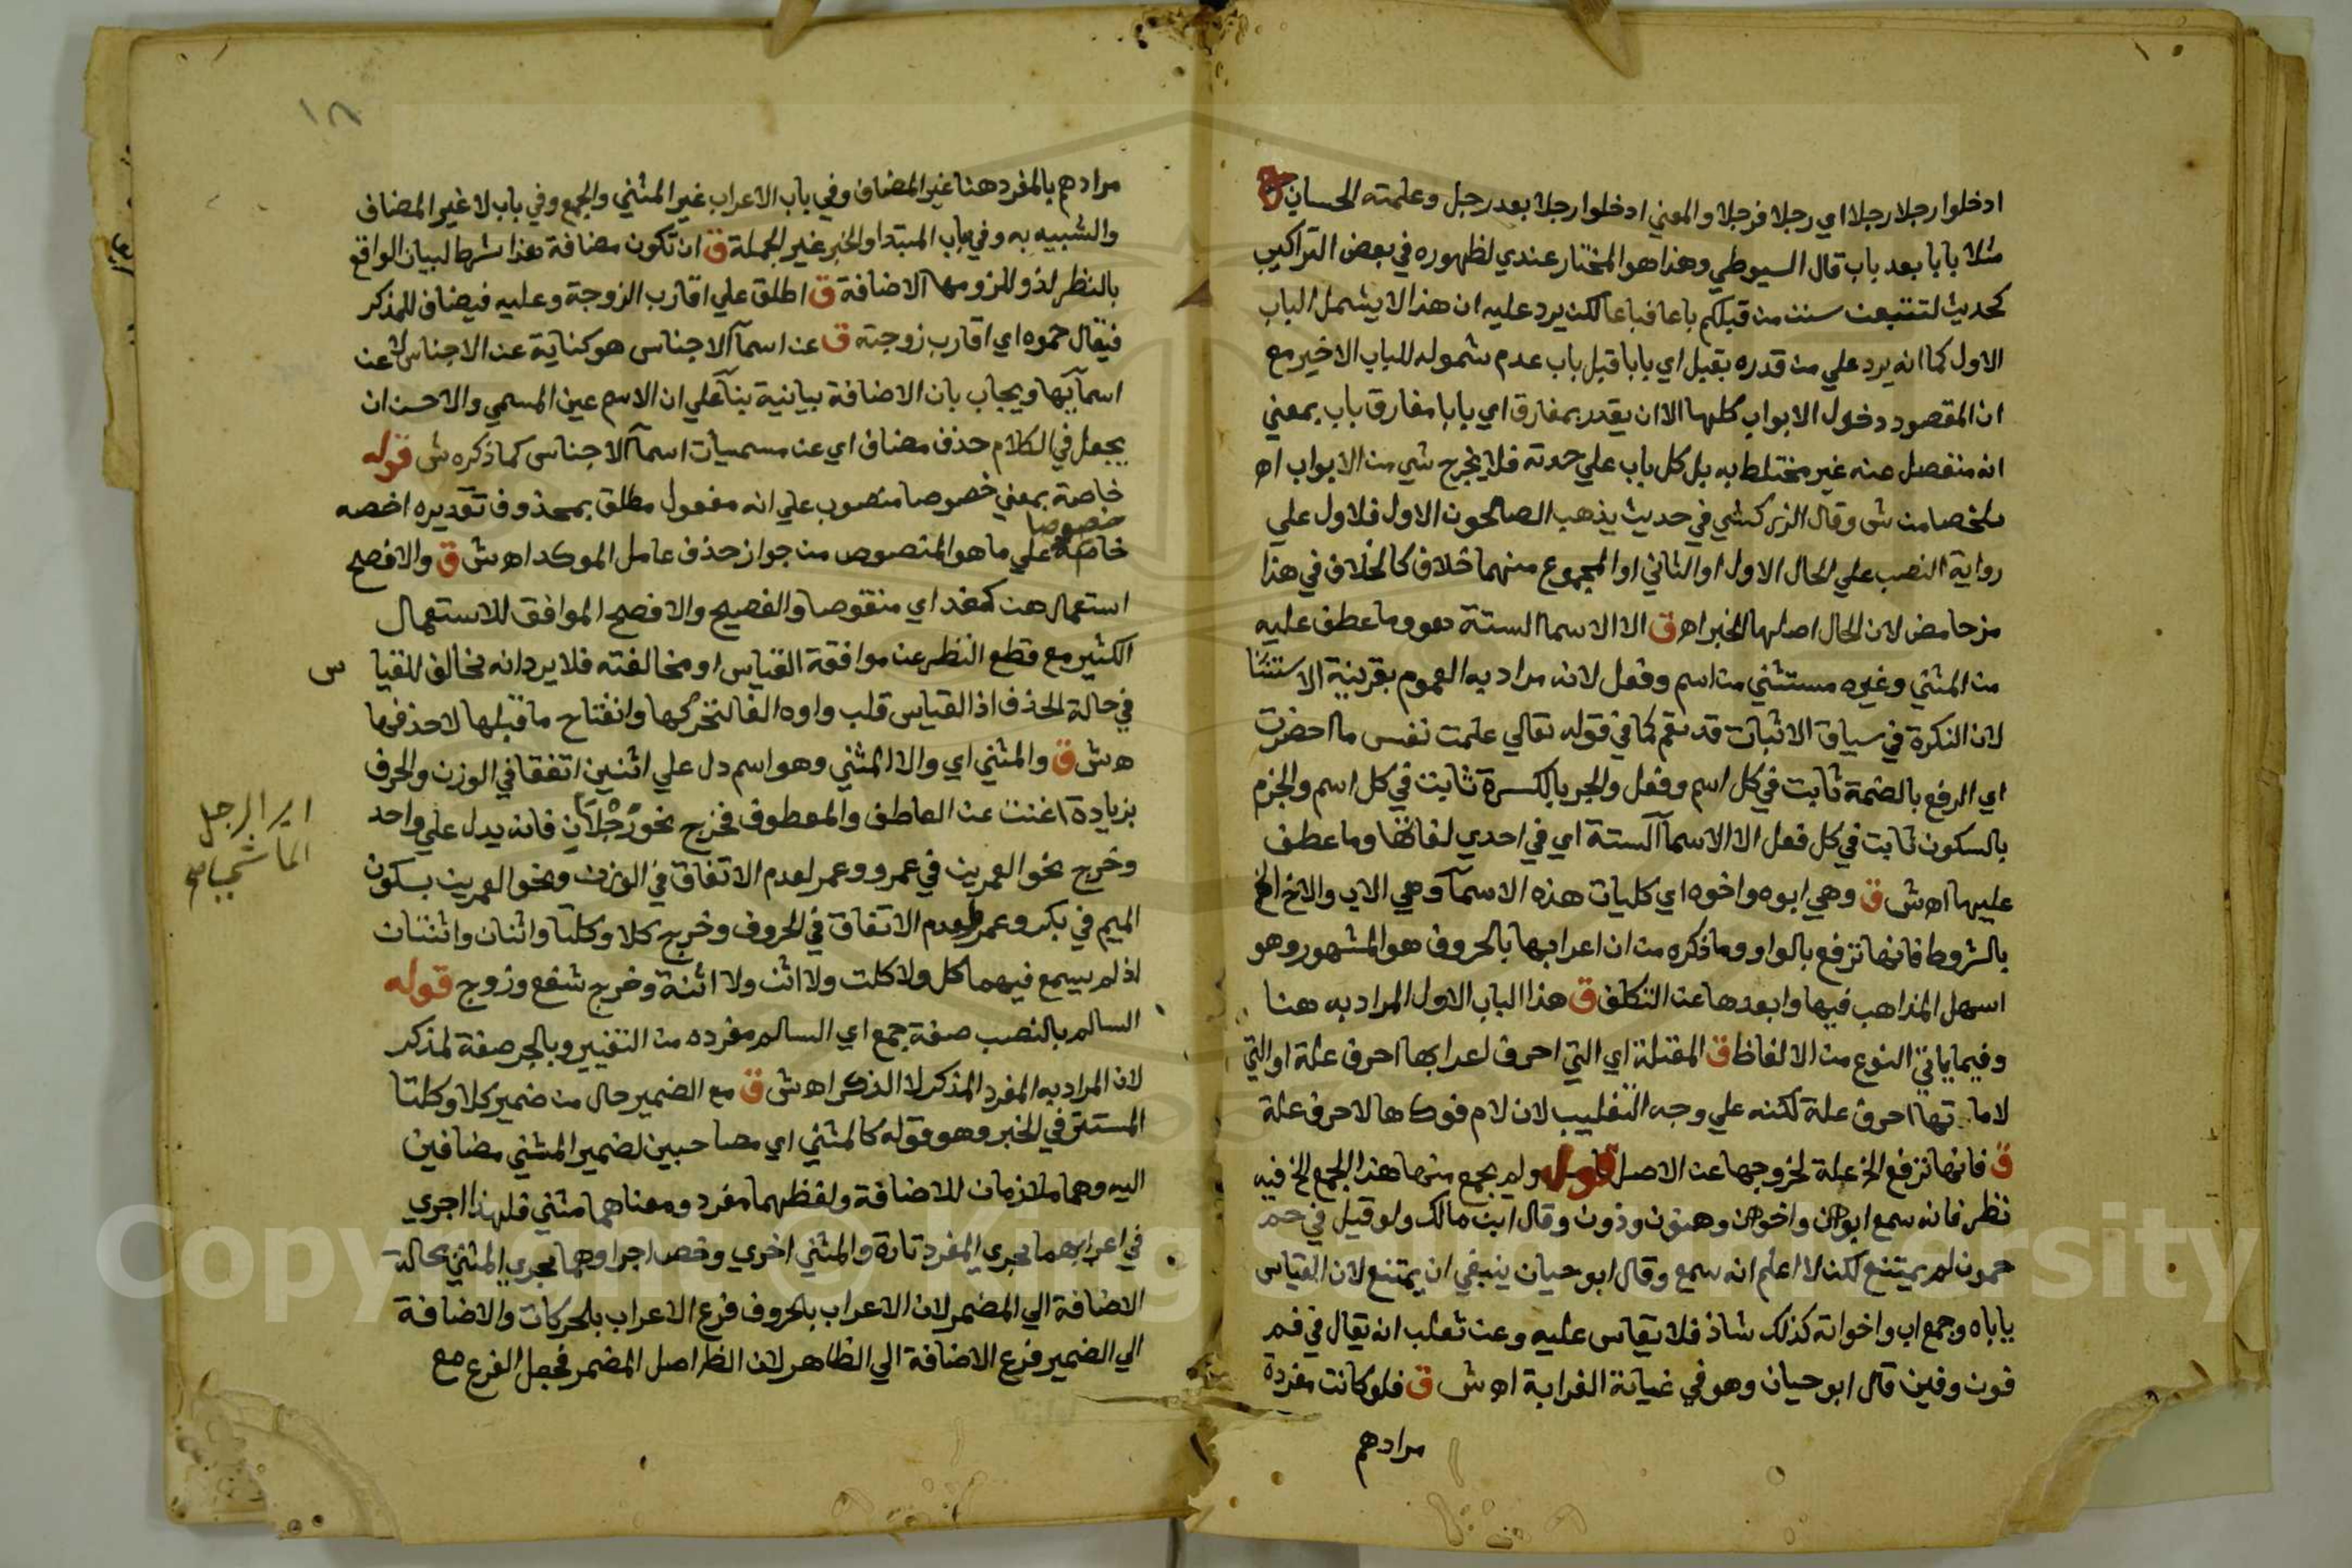 ادخلوا رجلا رجلا اي رجلا فرجلا والمعني ادخلوا رجلا بعد رجل وعلمته الحساب
مثلا بابا بعد باب قال السيوطي وهذا هو المختار عندي لظهوره في بعض التراكيب
كحديث لتتبعن سنن من قبلكم باعا فباعا لكن يرد عليه ان هذا لا يشمل الباب
الاول كما انه يرد علي من قدره بقبل اي بابا قبل باب عدم شموله للباب الاخير مع
ان المقصود دخول الابواب كلها الا ان يقدر بمفارق اي بابا مفارق باب بمعني
انه منفصل عنه غير مختلط به بل كل باب علي حدته فلا يخرج شي من الابواب اه
ملخصا من ش وقال الزركشي في حديث يذهب الصالحون الاول فلاول علي
رواية النصب علي الحال الاول او الثاني او المجموع منهما خلاف كالخلاف في هذا
مز حامض لان الحال اصلها الخبر اه ق الا الاسما الستة هو وما عطف عليه
من المثني وغيره مستثني من اسم وفعل لانه مراد به العموم بقرينة الاستثنا
لان النكرة في سياق الاثبات قد تعم كما في قوله تعالي علمت نفس ما احضرت
اي الرفع بالضمة ثابت في كل اسم وفعل والجر بالكسرة ثابت في كل اسم والجزم
بالسكون ثابت في كل فعل الا الاسمآ الستة اي في احدي لغاتها وما عطف
عليها اه ش ق وهي ابوه واخوه اي كليات هذه الاسمآ وهي الاب والاخ الخ
بالشروط فانها ترفع بالواو وما ذكره من ان اعرابها بالحروف هو المشهور وهو
اسهل المذاهب فيها وابعدها عن التكلف ق هذا الباب الاول المراد به هنا
وفيما ياتي النوع من الالفاظ ق المعتلة اي التي احرف اعرابها احرف علة او التي
لاماتها احرف علة لكنه علي وجه التغليب لان لام فوك ها لا حرف علة
ق فانها ترفع الخ علة لخروجها عن الاصل قوله ولم يجمع منها هذا الجمع الخ فيه
نظر فانه سمع ابون واخون وهنون وذون وقال ابن مالك ولو قيل في حم
حمون لم يمتنع لكن لا اعلم انه سمع وقال ابو حيان ينبغي ان يمتنع لان القياس
ياباه وجمع اب واخواته كذلك شاذ فلا يقاس عليه وعن ثعلب انه يقال في فم
فون وفين قال ابو حيان وهو في غياية الغرابة اه ش ق فلو كانت مفردة
مرادهم
١٨
مرادهم بالمفرد هنا غير المضاف وفي باب الاعراب غير المثني والجمع وفي باب لا غير المضاف
والشبيه به وفي باب المبتدا والخبر غير الجملة ق ان تكون مضافة هذا شرط لبيان الواقع
بالنظر لذو للزومها الاضافة ق اطلق علي اقارب الزوجة وعليه فيضاف للمذكر
فيقال حموه اي اقارب زوجته ق عن اسمآ الاجناس هو كناية عن الاجناس لا عن
اسمآيها ويجاب بان الاضافة بيانية بنآ علي ان الاسم عين المسمي والاحسن ان
يجعل في الكلام حذف مضاف اي عن مسميات اسمآ الاجناس كما ذكره ش قوله
خاصة بمعني خصوصا منصوب علي انه مفعول مطلق بمحذوف تقديره اخصه
خصوصا
خاصة علي ما هو المنصوص من جواز حذف عامل الموكد اه ش ق والافصح
استعمال هن كغد اي منقوصا والفصيح والافصح الموافق للاستعمال
الكثير مع قطع النظر عن موافقة القياس او مخالفته فلا يرد انه مخالف للقيا س
في حالة الحذف اذ القياس قلب واوه الفا لتحركها وانفتاح ما قبلها لا حذفها
ه ش ق والمثني اي والا المثني وهو اسم دل علي اثنين اتفقا في الوزن والحرف
بزيادة اغنت عن العاطف والمعطوف فخرج نحو رجلان فانه يدل علي واحد
اي الرجل
الماشي
وخرج نحو العمرين في عمرو وعمر لعدم الاتفاق في الوزن ونحو العمرين بسكون
الميم في بكر وعمرو لعدم الاتفاق في الحروف وخرج كلا وكلتا واثنان واثنتان
اذ لم يسمع فيهما كل ولا كلت ولا اثن ولا اثنة وخرج شفع وزوج قوله
السالم بالنصب صفة جمع اي السالم مفرده من التغيير وبالجر صفة لمذكر
لان المراد به المفرد المذكر لا الذكر اه ش ق مع الضمير حال من ضمير كلا وكلتا
المستتر في الخبر وهو قوله كالمثني اي مصاحبين لضمير المثني مضافين
اليه وهما ملازمان للاضافة ولفظهما مفرد ومعناهما مثني فلهذا اجري
في اعرابهما مجري المفرد تارة والمثني اخري وخص اجراوهما مجري المثني بحالة
الاضافة الي المضمر لان الاعراب بالحروف فرع الاعراب بالحركات والاضافة
الي الضمير فرع الاضافة الي الظاهر لان الظاهر اصل المضمر فجعل الفرع مع
Copyright © King Saud University